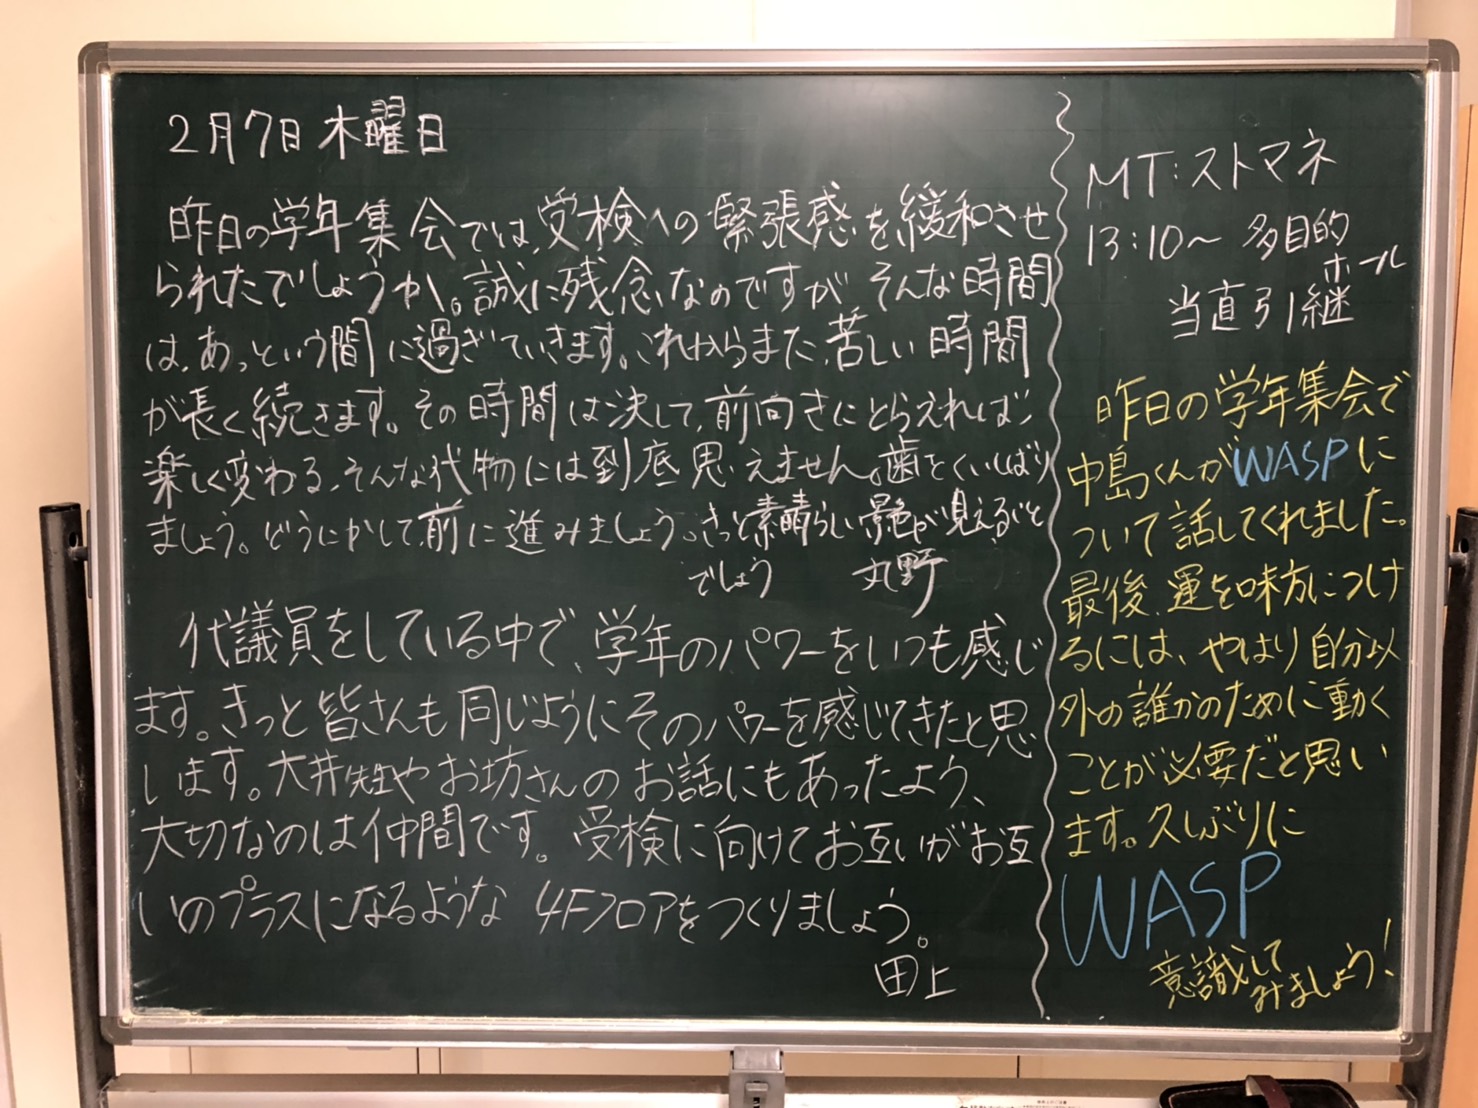 2月7日 木曜日
昨日の学年集会では、受検への緊張感を緩和させ
られたでしょうか。誠に残念なのですが そんな時間
は、あっという間に過ぎていきます。これからまた、苦しい時間
が長く続きます。その時間は決して、前向きにとらえれば
楽しく変わる、そんな代物には到底思えません。歯をくいしばり
ましょう。どうにかして、前に進みましょう。きっと素晴らしい景色が見えること
でしょう 丸野
代議員をしている中で、学年のパワーをいつも感じ
ます。きっと皆さんも同じようにそのパワーを感じてきたと思
います。大井先生やお坊さんのお話にもあったよう、
大切なのは仲間です。受検に向けてお互いがお互
いのプラスになるような 4Fフロアをつくりましょう。
田上
MT:ストマネ
13:10〜 多目的
ホール
当直引継
昨日の学年集会で
中島くんがWASPに
ついて話してくれました。
最後、運を味方につけ
るには、やはり自分以
外の誰かのために動く
ことが必要だと思い
ます。久しぶりに
WASP
意識して
みましょう!